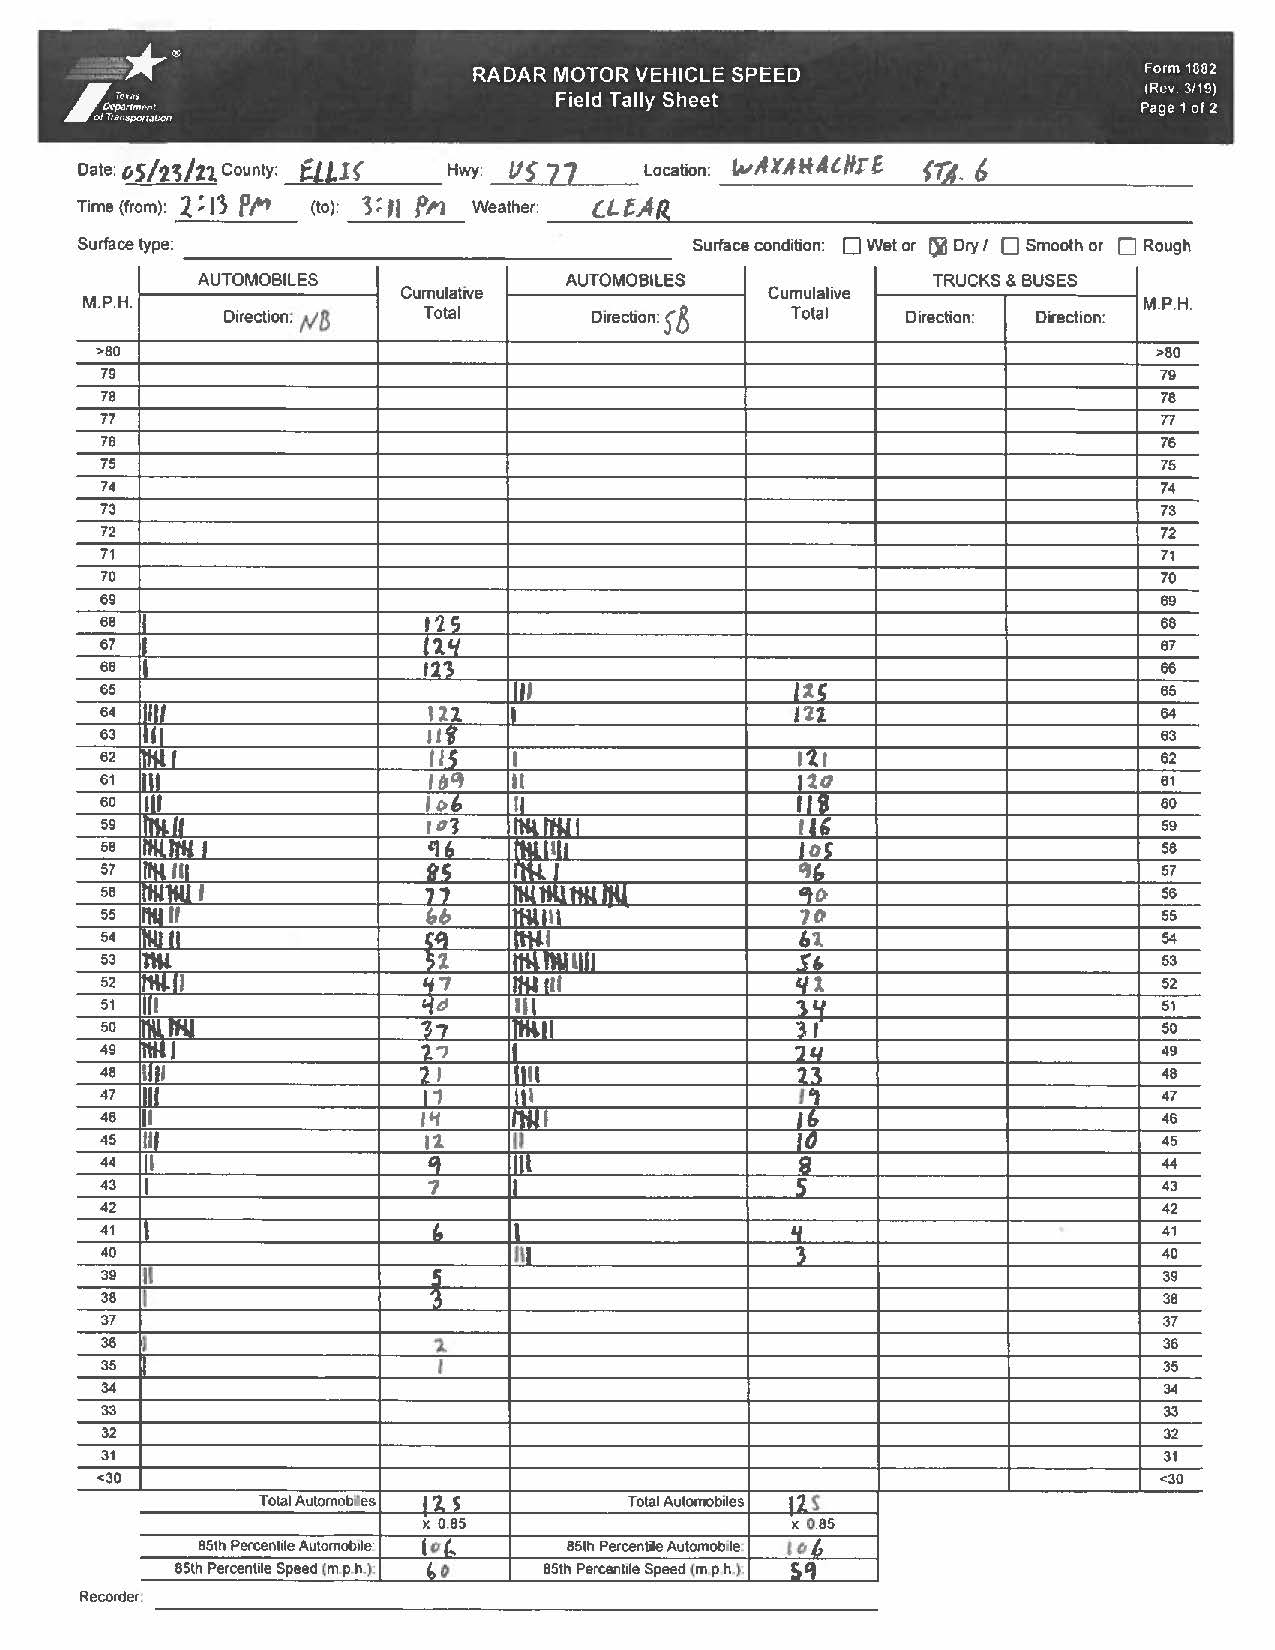 Texas
Department
of Transportation
®
RADAR MOTOR VEHICLE SPEED
Field Tally Sheet
Form 1882
(Rev. 3/19)
Page 1 of 2
Date: 05/23/22 County: ELLIS Hwy: US 77 Location: WAXAHACHIE STA. 6
Time (from): 2:13 PM (to): 3:11 PM Weather: CLEAR
Surface type: Surface condition: Wet or Dry / Smooth or Rough
M.P.H. AUTOMOBILES Cumulative Total AUTOMOBILES Cumulative Total TRUCKS & BUSES M.P.H.
Direction: NB Direction: SB Direction: Direction:
>80 >80
79 79
78 78
77 77
76 76
75 75
74 74
73 73
72 72
71 71
70 70
69 69
68 | 125 68
67 | 124 67
66 | 123 66
65 ||| 125 65
64 |||| 122 | 122 64
63 ||| 118 63
62 |||| | 115 | 121 62
61 ||| 109 || 120 61
60 ||| 106 || 118 60
59 |||| || 103 |||| |||| | 116 59
58 |||| |||| | 96 |||| |||| 105 58
57 |||| ||| 85 |||| | 96 57
56 |||| |||| | 77 |||| |||| |||| |||| 90 56
55 |||| || 66 |||| ||| 70 55
54 |||| || 59 |||| | 62 54
53 |||| 52 |||| |||| |||| 56 53
52 |||| || 47 |||| ||| 42 52
51 ||| 40 ||| 34 51
50 |||| |||| 37 |||| || 31 50
49 |||| | 27 | 24 49
48 |||| 21 |||| 23 48
47 ||| 17 ||| 19 47
46 || 14 |||| | 16 46
45 ||| 12 || 10 45
44 || 9 ||| 8 44
43 | 7 | 5 43
42 42
41 | 6 | 4 41
40 ||| 3 40
39 || 5 39
38 | 3 38
37 37
36 | 2 36
35 | 1 35
34 34
33 33
32 32
31 31
<30 <30
Total Automobiles 125 Total Automobiles 125
x 0.85 x 0.85
85th Percentile Automobile: 106 85th Percentile Automobile: 106
85th Percentile Speed (m.p.h.): 60 85th Percentile Speed (m.p.h.): 59
Recorder: